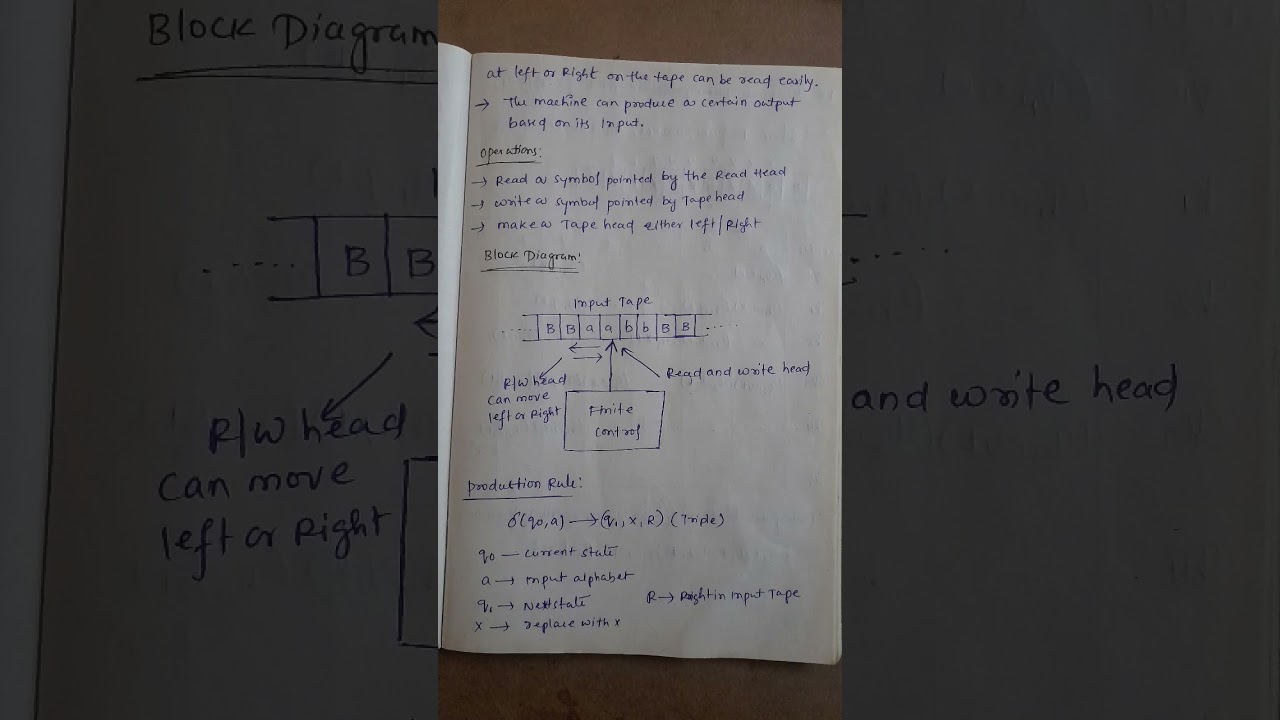 Block Diagram
B B
R/W head
can move
left or Right
and write head
at left or Right on the tape can be read easily.
→ The machine can produce a certain output
based on its Input.
Operations:
→ Read a symbol pointed by the Read Head
→ write a symbol pointed by Tape head
→ make a Tape head either left/Right
Block Diagram:
Input Tape
..... B B a a b b B B .....
R/W head
can move
left or Right
Read and write head
Finite
control
Production Rule:
δ(q0,a) → (q1, x, R) (Triple)
q0 — current state
a → Input alphabet
q1 → Next state
R → Right in Input Tape
x → replace with x